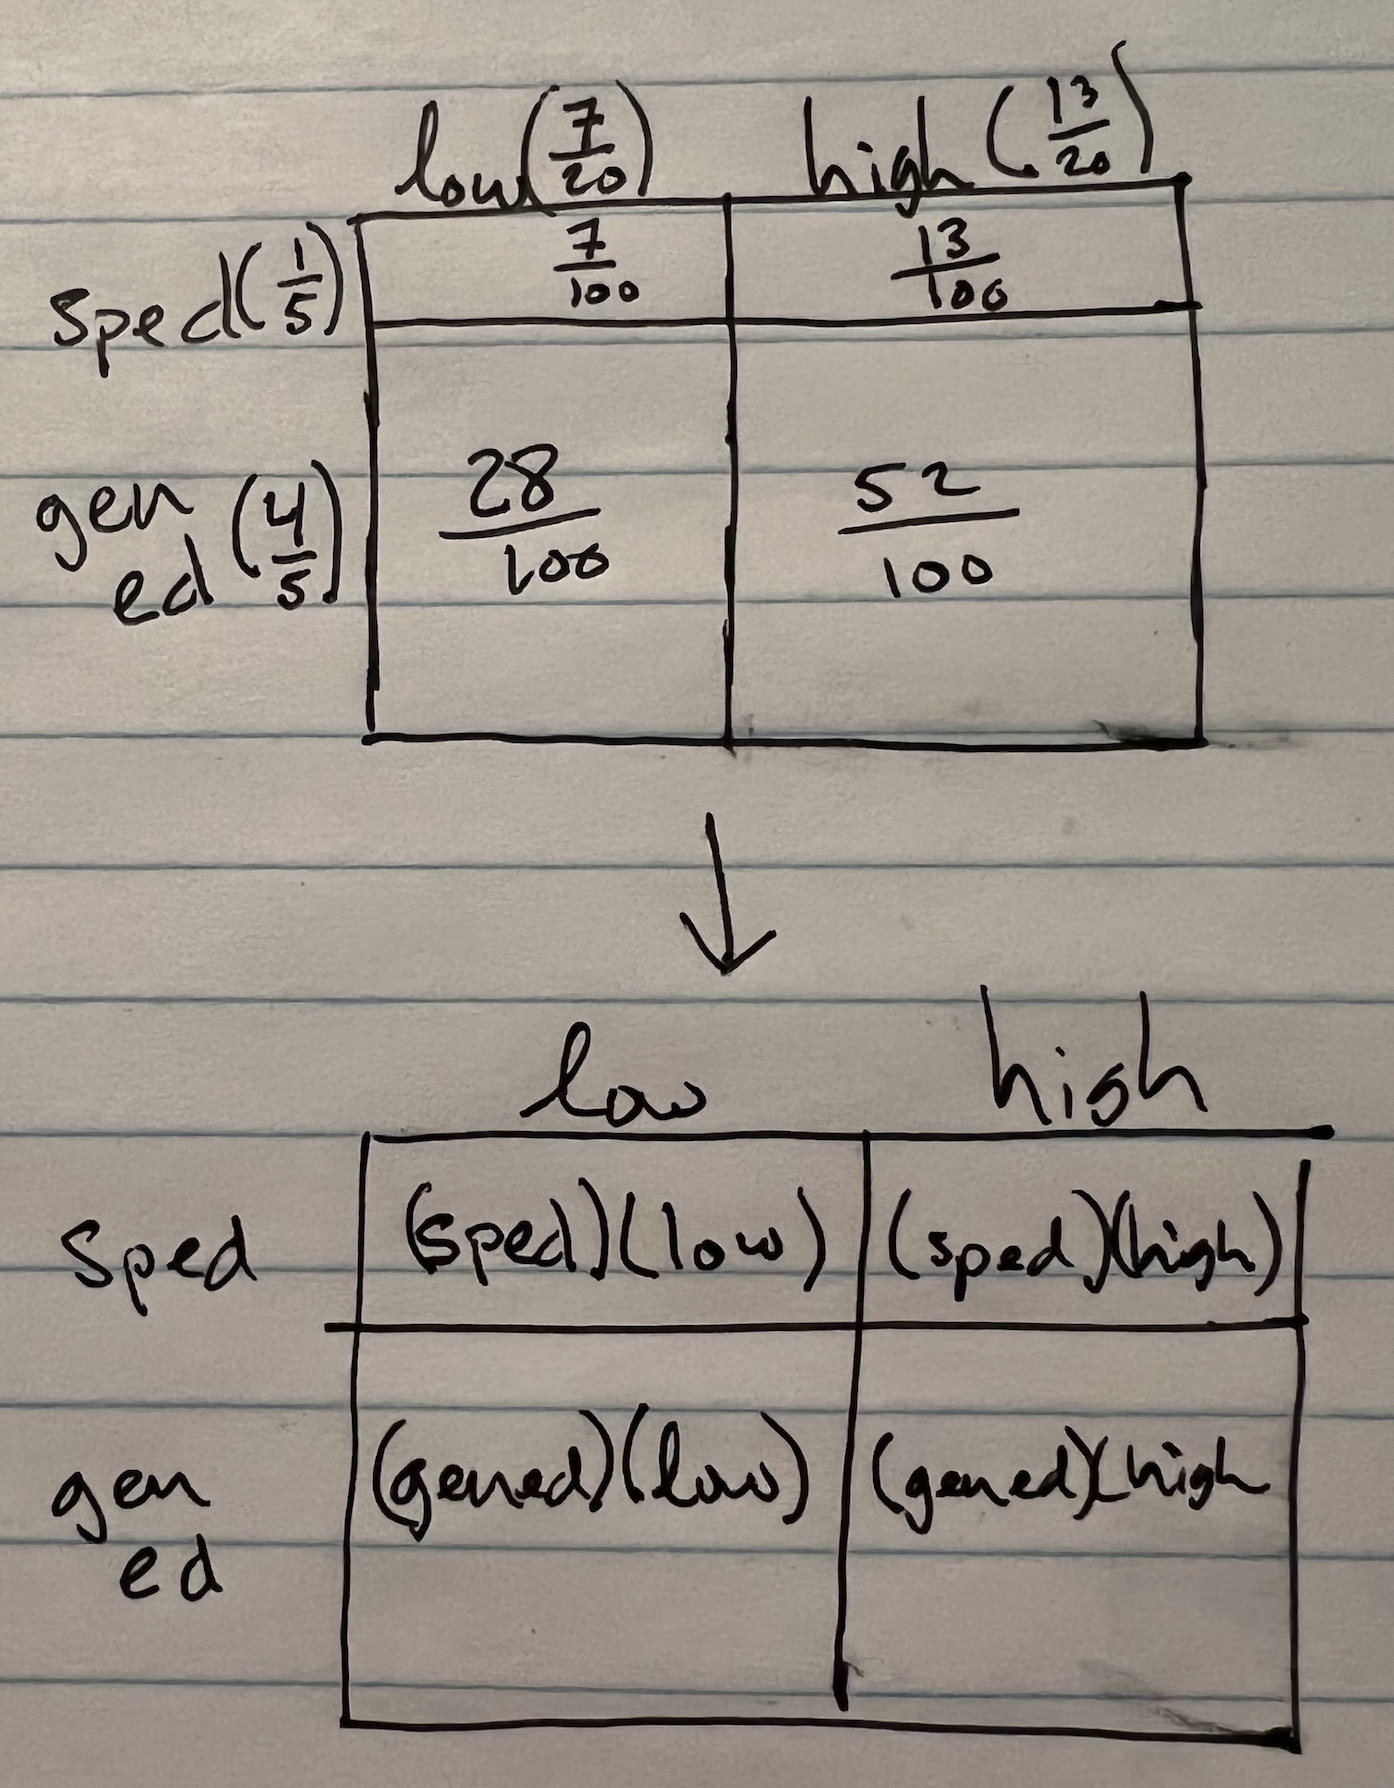 low (7/20) high (13/20)
sped (1/5) 7/100 13/100
gen ed (4/5) 28/100 52/100
low high
sped (sped)(low) (sped)(high)
gen ed (gened)(low) (gened)(high